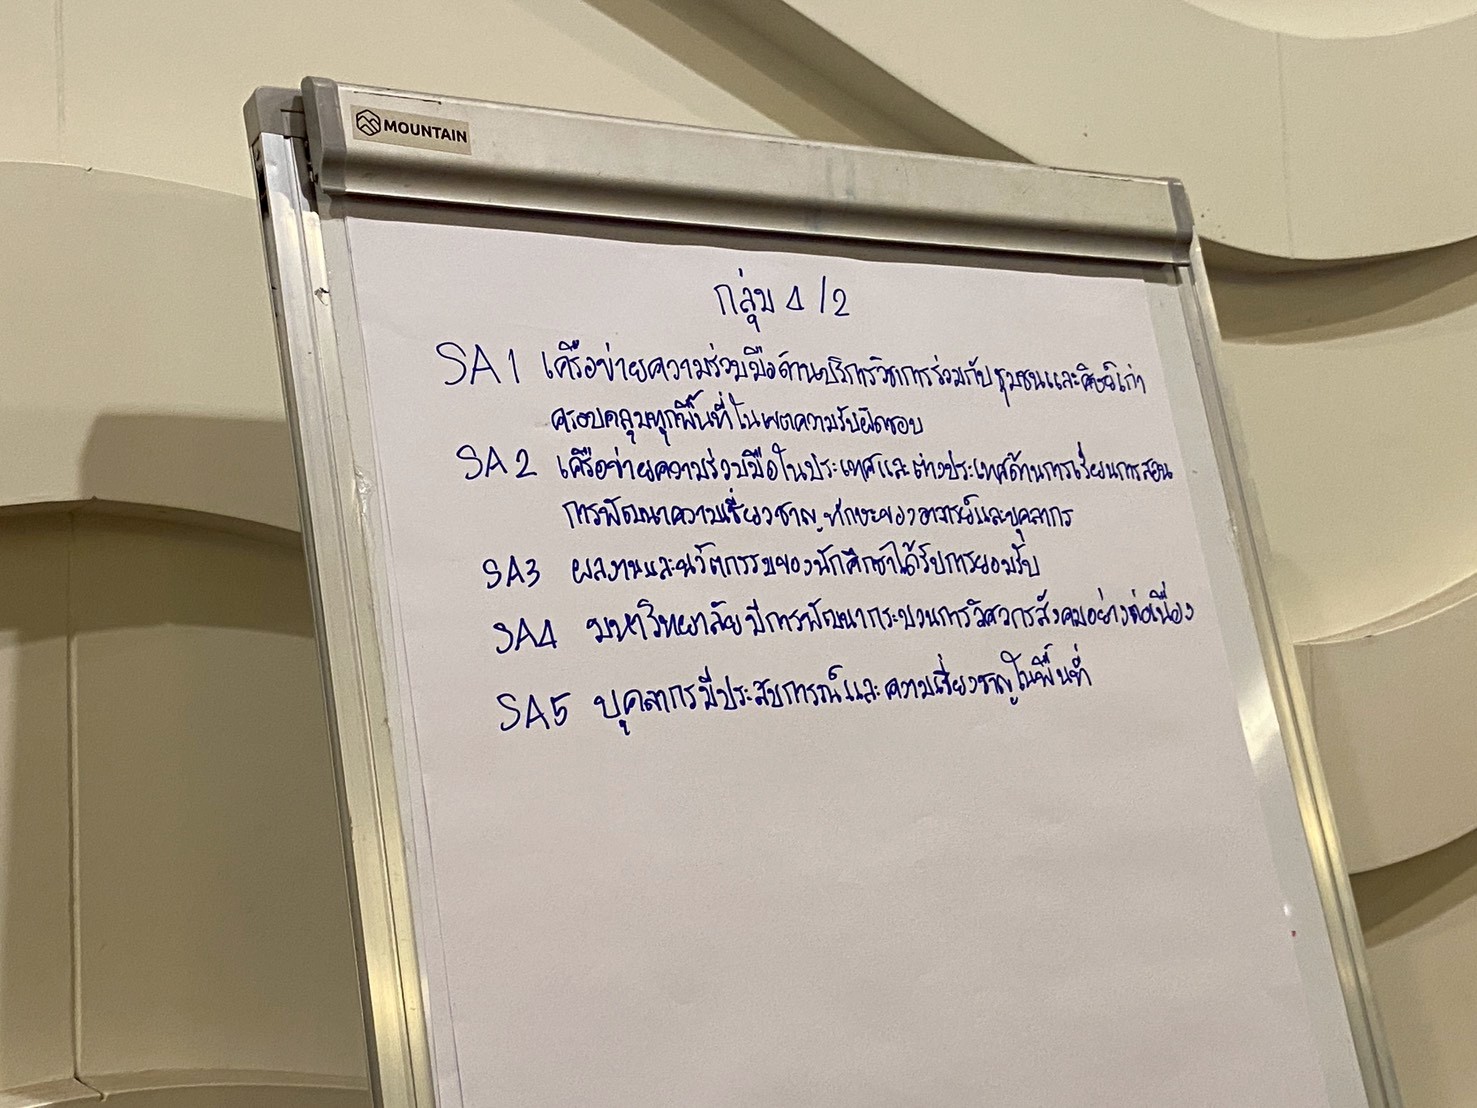 MOUNTAIN
กลุ่ม 4/2
SA1 เครือข่ายความร่วมมือด้านบริการวิชาการร่วมกับชุมชนและศิษย์เก่า
ครอบคลุมทุกพื้นที่ในเขตความรับผิดชอบ
SA2 เครือข่ายความร่วมมือในประเทศและต่างประเทศด้านการเรียนการสอน
การพัฒนาความเชี่ยวชาญ ทักษะของอาจารย์และบุคลากร
SA3 ผลงานและนวัตกรรมของนักศึกษาได้รับการยอมรับ
SA4 มหาวิทยาลัยมีการพัฒนากระบวนการวิศวกรสังคมอย่างต่อเนื่อง
SA5 บุคลากรมีประสบการณ์และความเชี่ยวชาญในพื้นที่